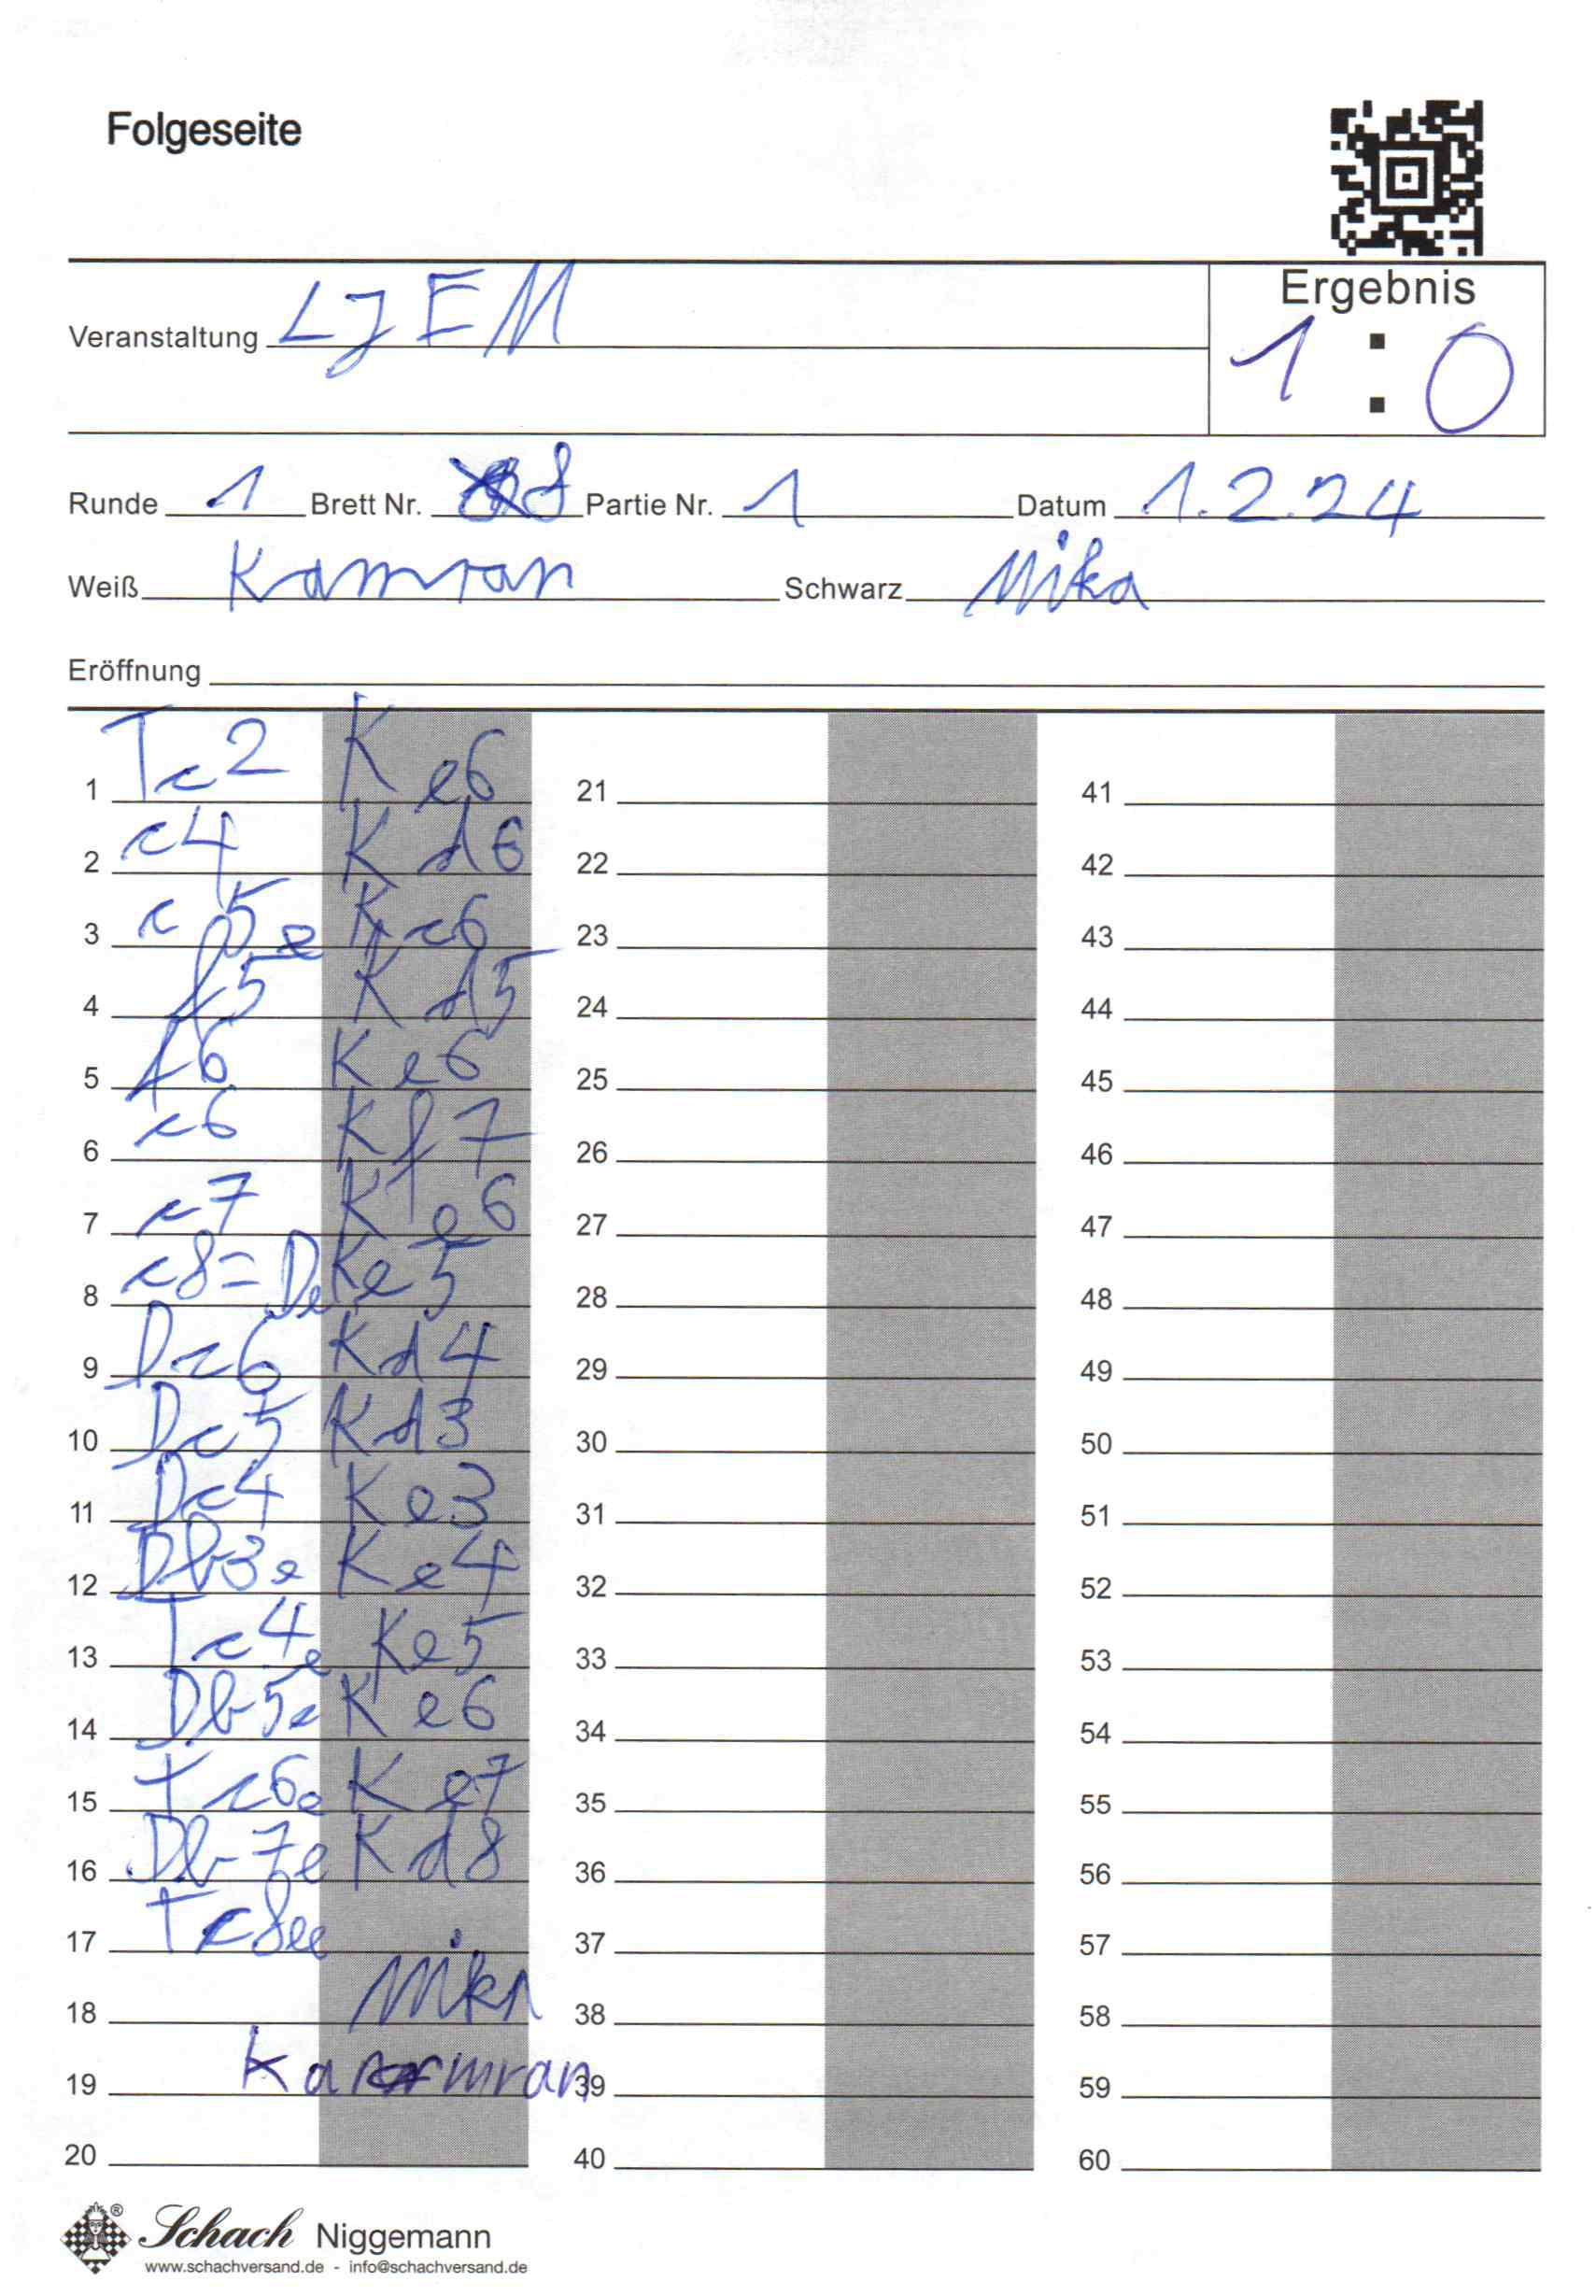 Folgeseite
Veranstaltung LJEM
Ergebnis
1 : 0
Runde 1 Brett Nr. 8 Partie Nr. 1 Datum 1.2.24
Weiß Kamran Schwarz Mika
Eröffnung
1 Tc2 Ke6 21 41
2 c4 Kd6 22 42
3 c5e Kc6 23 43
4 f5 Kd5 24 44
5 f6 Ke6 25 45
6 c6 Kf7 26 46
7 c7 Ke6 27 47
8 c8=De Ke5 28 48
9 Dc6 Kd4 29 49
10 Dc5 Kd3 30 50
11 Dc4 Ke3 31 51
12 Db3e Ke4 32 52
13 Tc4e Ke5 33 53
14 Db5e Ke6 34 54
15 Tc6e Ke7 35 55
16 Db7e Kd8 36 56
17 Tc8ee 37 57
18 Mika 38 58
19 Kamran 39 59
20 40 60
Schach Niggemann
www.schachversand.de - info@schachversand.de